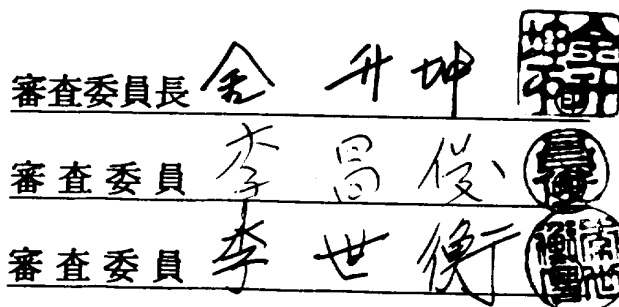 審査委員長 金升坤
審査委員 李昌俊
審査委員 李世衡